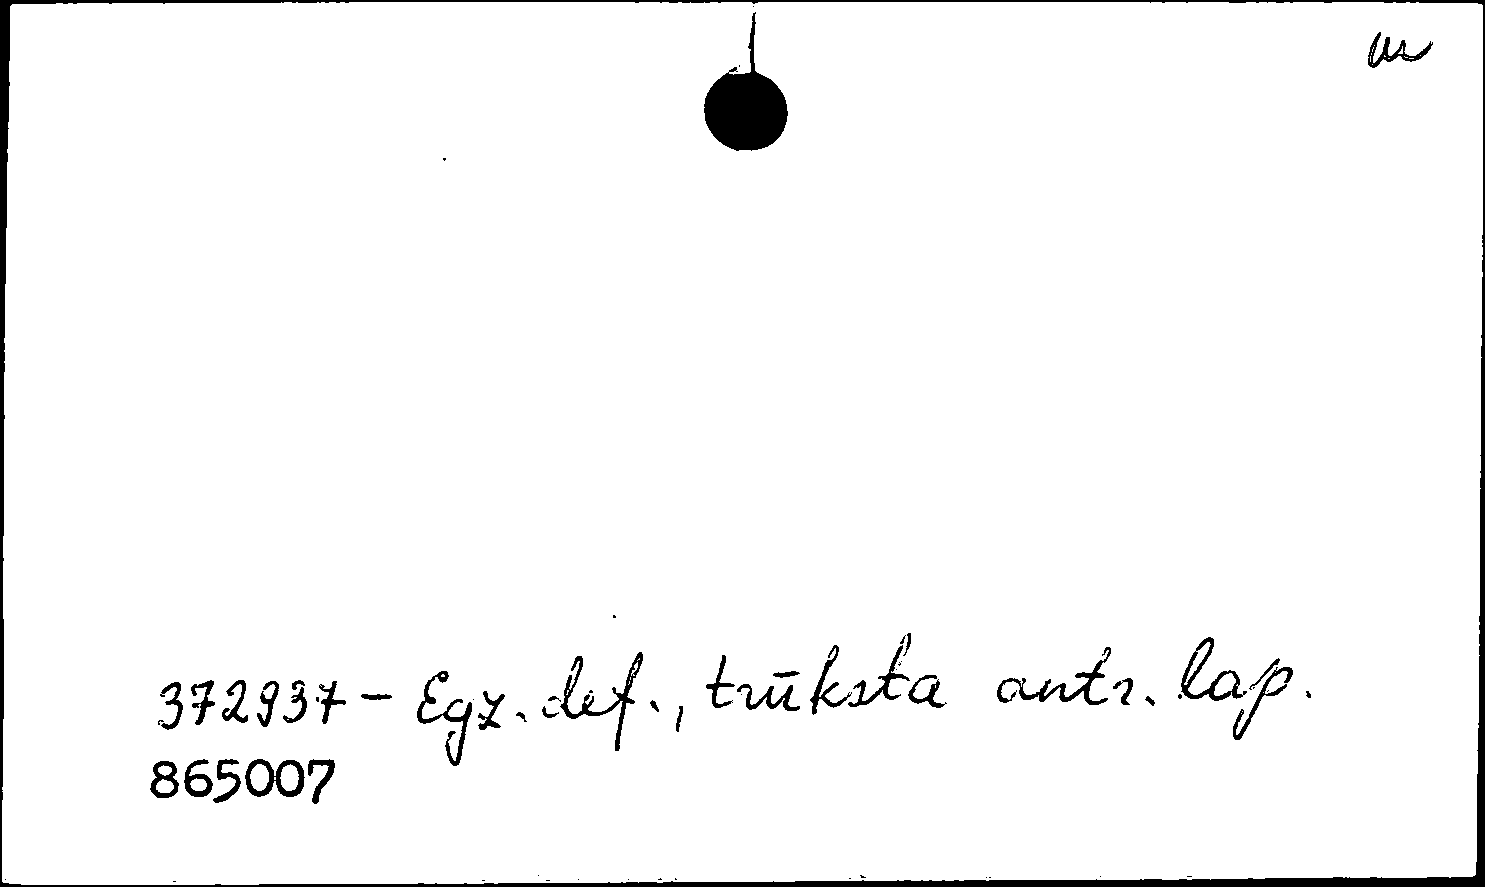 372937 – Egz. def., trūksta antr. lap.
865007